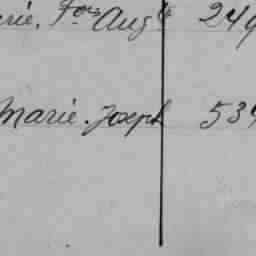 rie. Fois Augte 249
Marie. Joseph 534